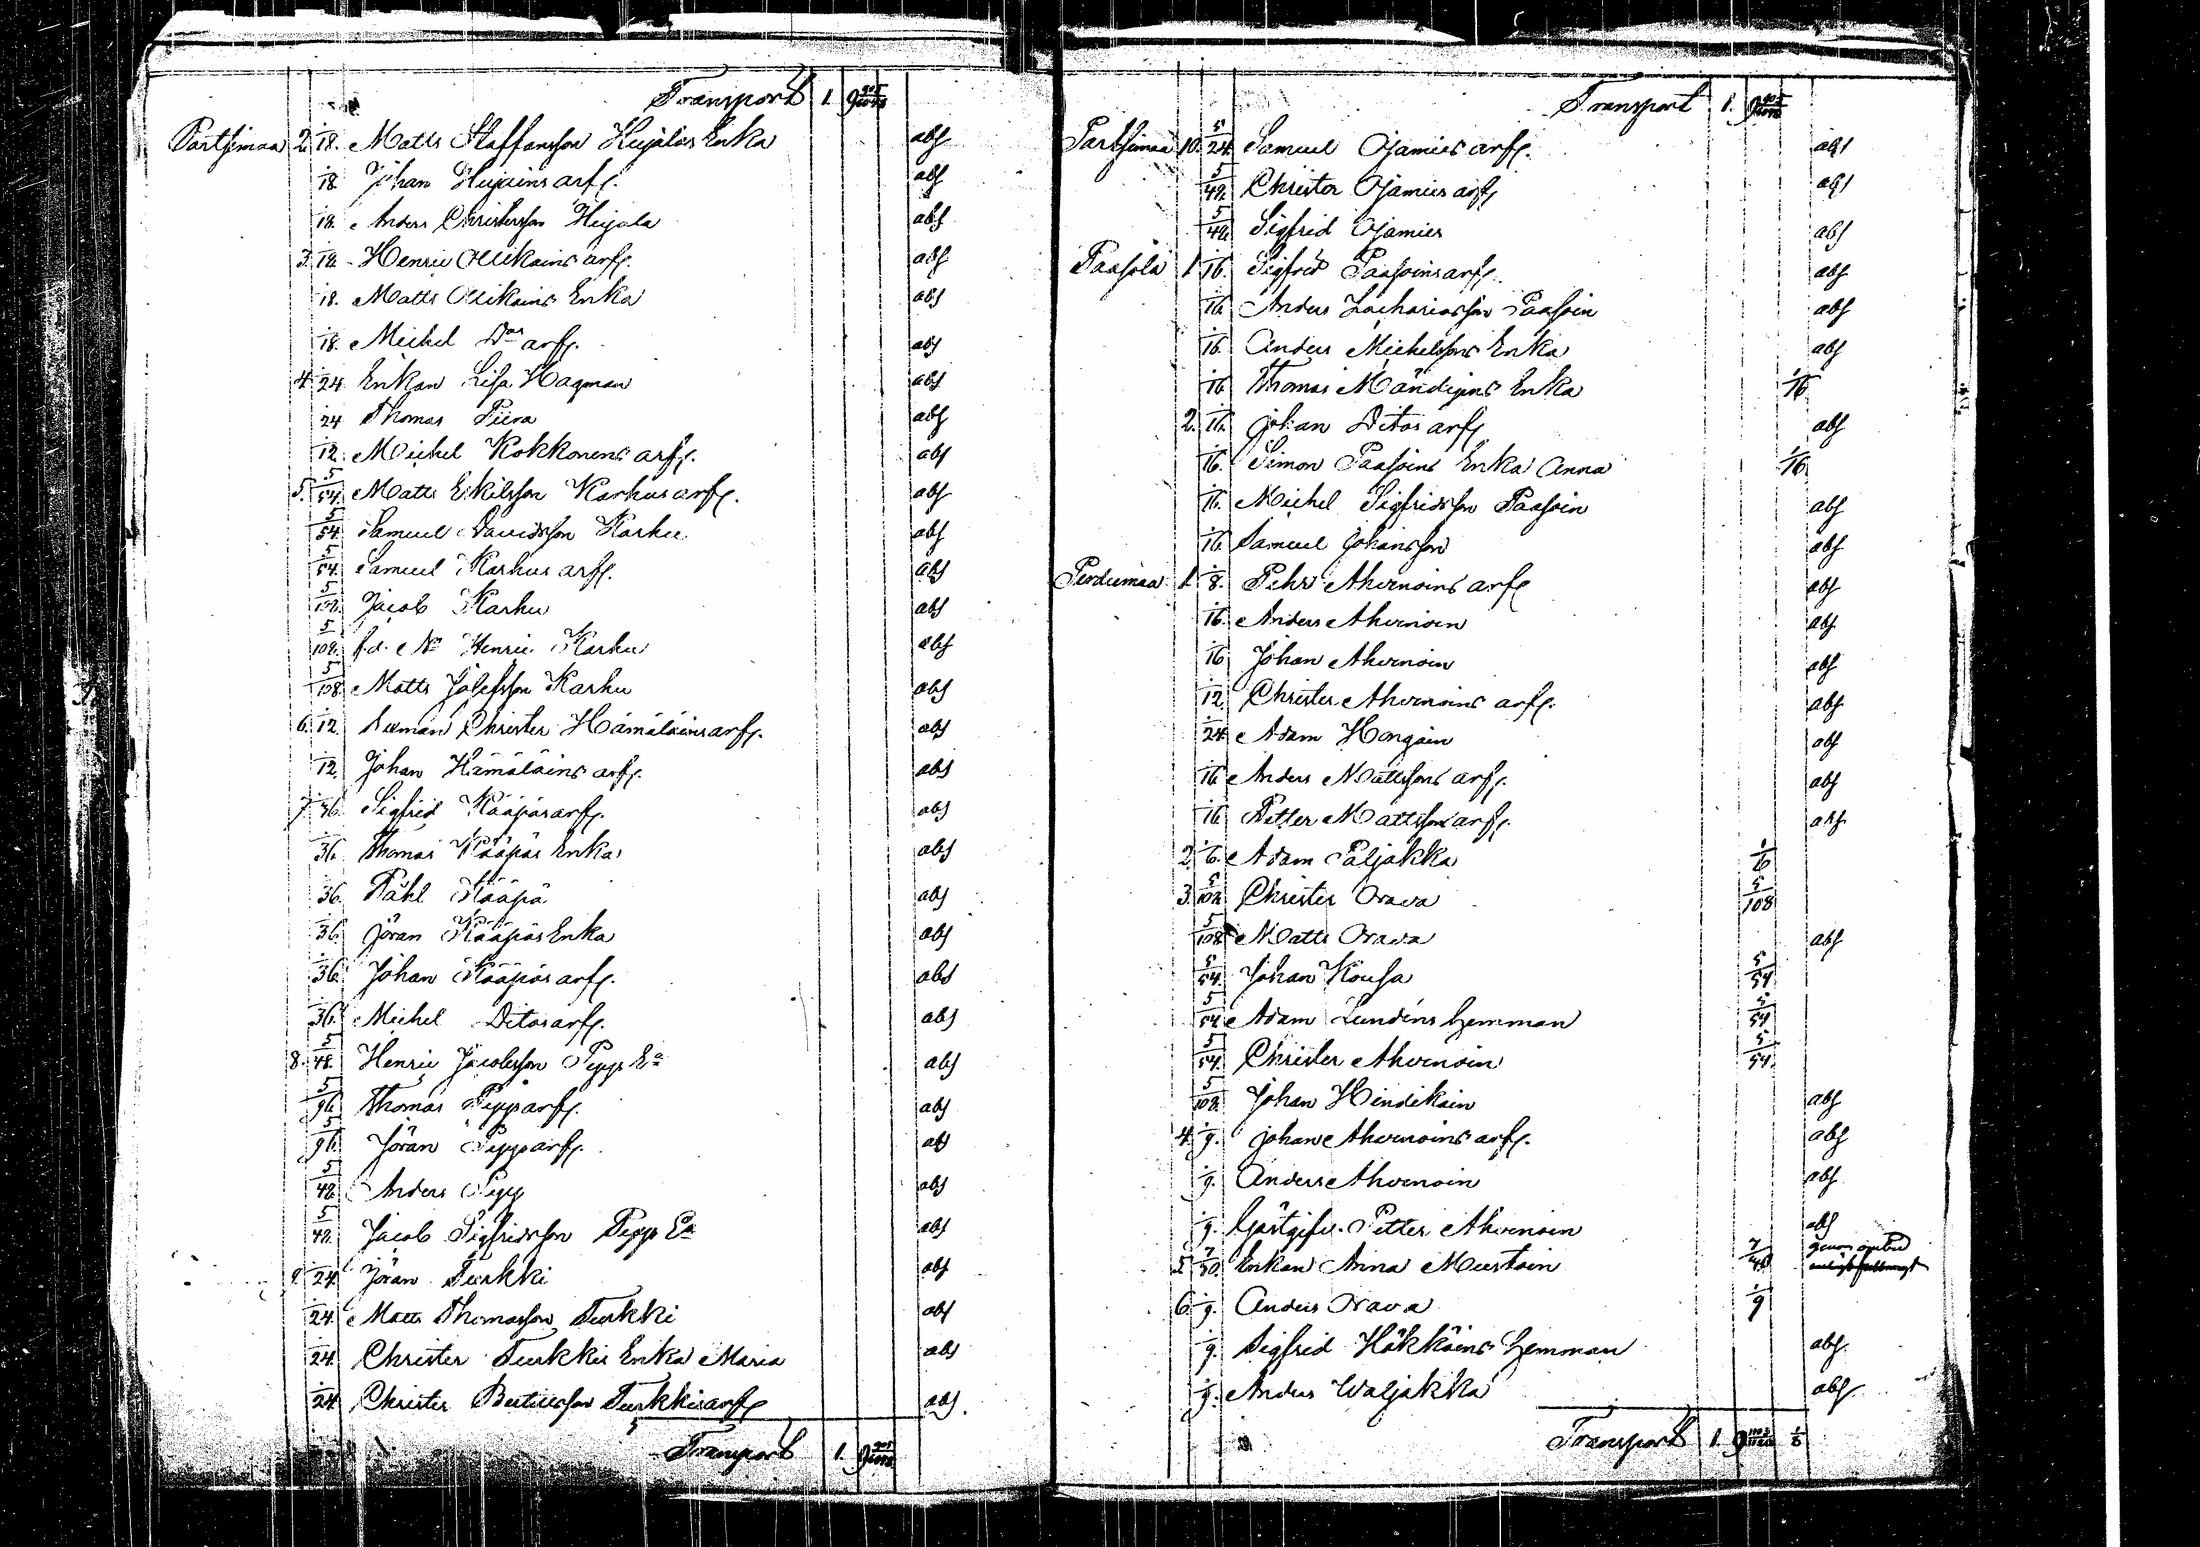 Transport 1. 9
Partsimaa 2. 1/18. Matts Staffansson Hujalas Enka abs
1/18. Johan Hujains arfr. abs
1/18. Anders Christersson Hujala abs
3. 1/18. Henric Ollikains arfr. abs
1/18. Matts Ollikains Enka abs
1/18. Michel Dos arfr. abs
4. 1/24. Enkan Lisa Hagman abs
1/24 Thomas Piira abs
1/12. Michel Kokkonens arfr. abs
5. 5/54. Matts Erikssson Karhus arfr. abs
5/54. Samuel Davidsson Karhu abs
5/54. Samuel Karhus arfr. abs
5/108. Jacob Karhu abs
5/108. f.d. Nn Henric Karhu abs
5/108. Matts Josefsson Karhu abs
6. 1/12. Christer Hämäläins arfr. abs
1/12. Johan Hämäläins arfr. abs
7. 1/36. Sigfrid Kääpäs arfr. abs
1/36. Thomas Kääpäs Enka abs
1/36. Påhl Kääpä abs
1/36. Jöran Kääpäs Enka abs
1/36. Johan Kääpäs arfr. abs
1/36. Michel Ditos arfr. abs
8. 5/48. Henric Jacobsson Pepps Ea abs
5/96. Thomas Pepps arfr. abs
5/96. Jöran Pepps arfr. abs
5/48. Anders Pepp abs
5/48. Jacob Sigfridsson Pepps Ea abs
9. 1/24. Jöran Turkki abs
1/24. Matts Thomasson Turkki abs
1/24. Christer Turkkis Enka Maria abs
1/24. Christer Bertilsson Turkkis arfr abs.
Transport 1. 9
Transport 1. 9
Partsimaa 10. 5/24. Samuel Ojamies arfr. abs
5/48. Christer Ojamies arfr abs
5/48. Sigfrid Ojamies abs
Paasola 1 1/16. Sigfrid Paasoins arfr. abs
1/16. Anders Zachariasson Paasoin abs
1/16. Anders Michelssons Enka abs
1/16. Thomas Mändyins Enka 1/16
2. 1/16. Johan Ditos arfr abs
1/16. Simon Paasoins Enka Anna 1/16
1/16. Michel Sigfridsson Paasoin abs
1/16. Samuel Johansson abs
Pertumaa 1. 1/8. Pehr Ahvenoins arfr abs
1/16. Anders Ahvenoin abs
1/16 Johan Ahvenoin abs
1/12. Christer Ahvenoins arfr. abs
1/24. Adam Hongain abs
1/16 Anders Mattssons arfr. abs
1/16 Petter Mattssons arfr. abs
2. 1/6. Adam Paljakka 1/6
3. 5/108 Christer Orava 5/108
5/108 Matts Orava abs
5/54. Johan Kousa 5/54
5/54. Adam Lundéns hemman 5/54
5/54. Christer Ahvenoin 5/54.
5/108. Johan Hindikain abs
4. 1/9. Johan Ahvenoins arfr. abs
1/9. Anders Ahvenoin abs
1/9. Gästgifv. Petter Ahvenoin abs
5. Enkan Anna Mustoin genom ombud
6. 1/9. Anders Orava 1/9
1/9. Sigfrid Häkkäins hemman abs.
1/9. Anders Waljakka abs.
Transport 1. 9